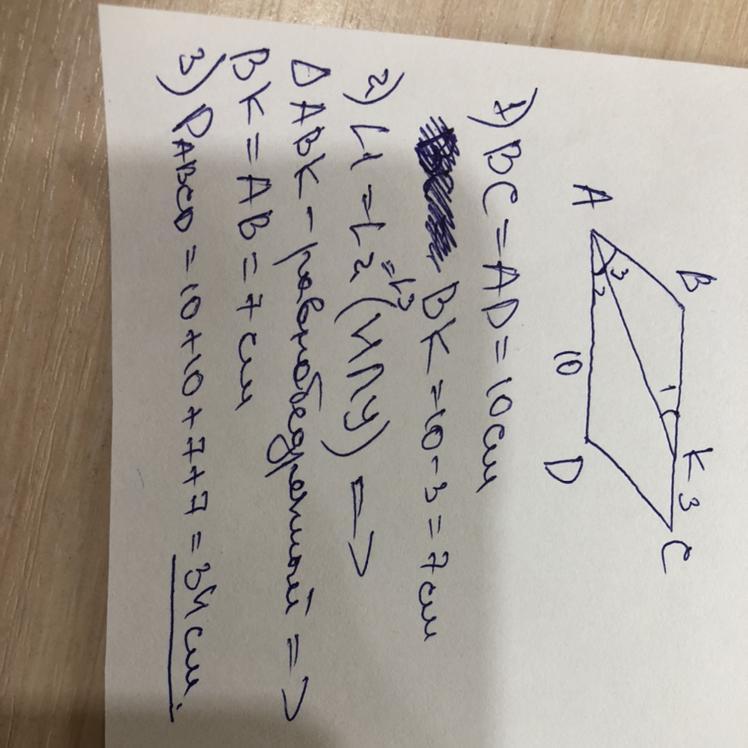 A
B
3
2
1
K
3
C
10
D
1) BC = AD = 10 см
BK = 10 - 3 = 7 см
2) ∠1 = ∠2 = ∠3 (НЛУ) =>
△ABK - равнобедренный =>
BK = AB = 7 см
3) PABCD = 10 + 10 + 7 + 7 = 34 см.